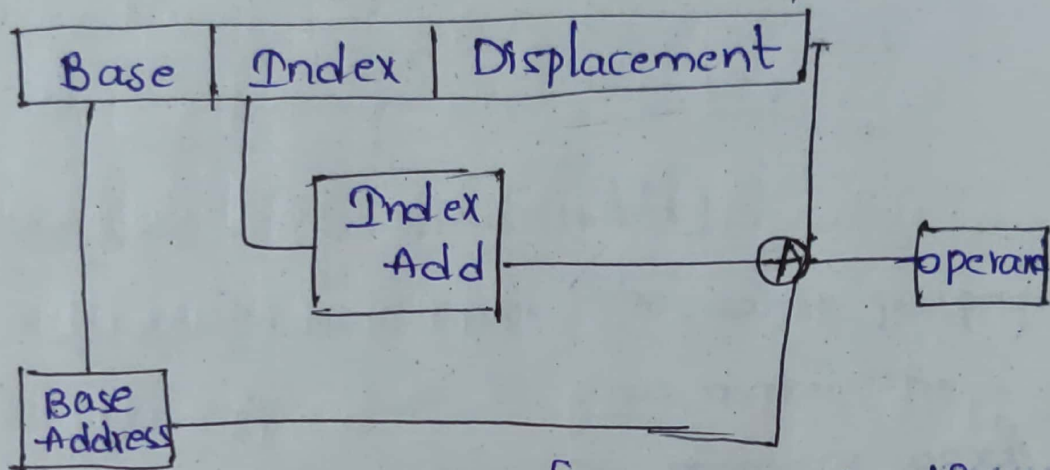 Base Index Displacement
Index
Add
operand
Base
Address